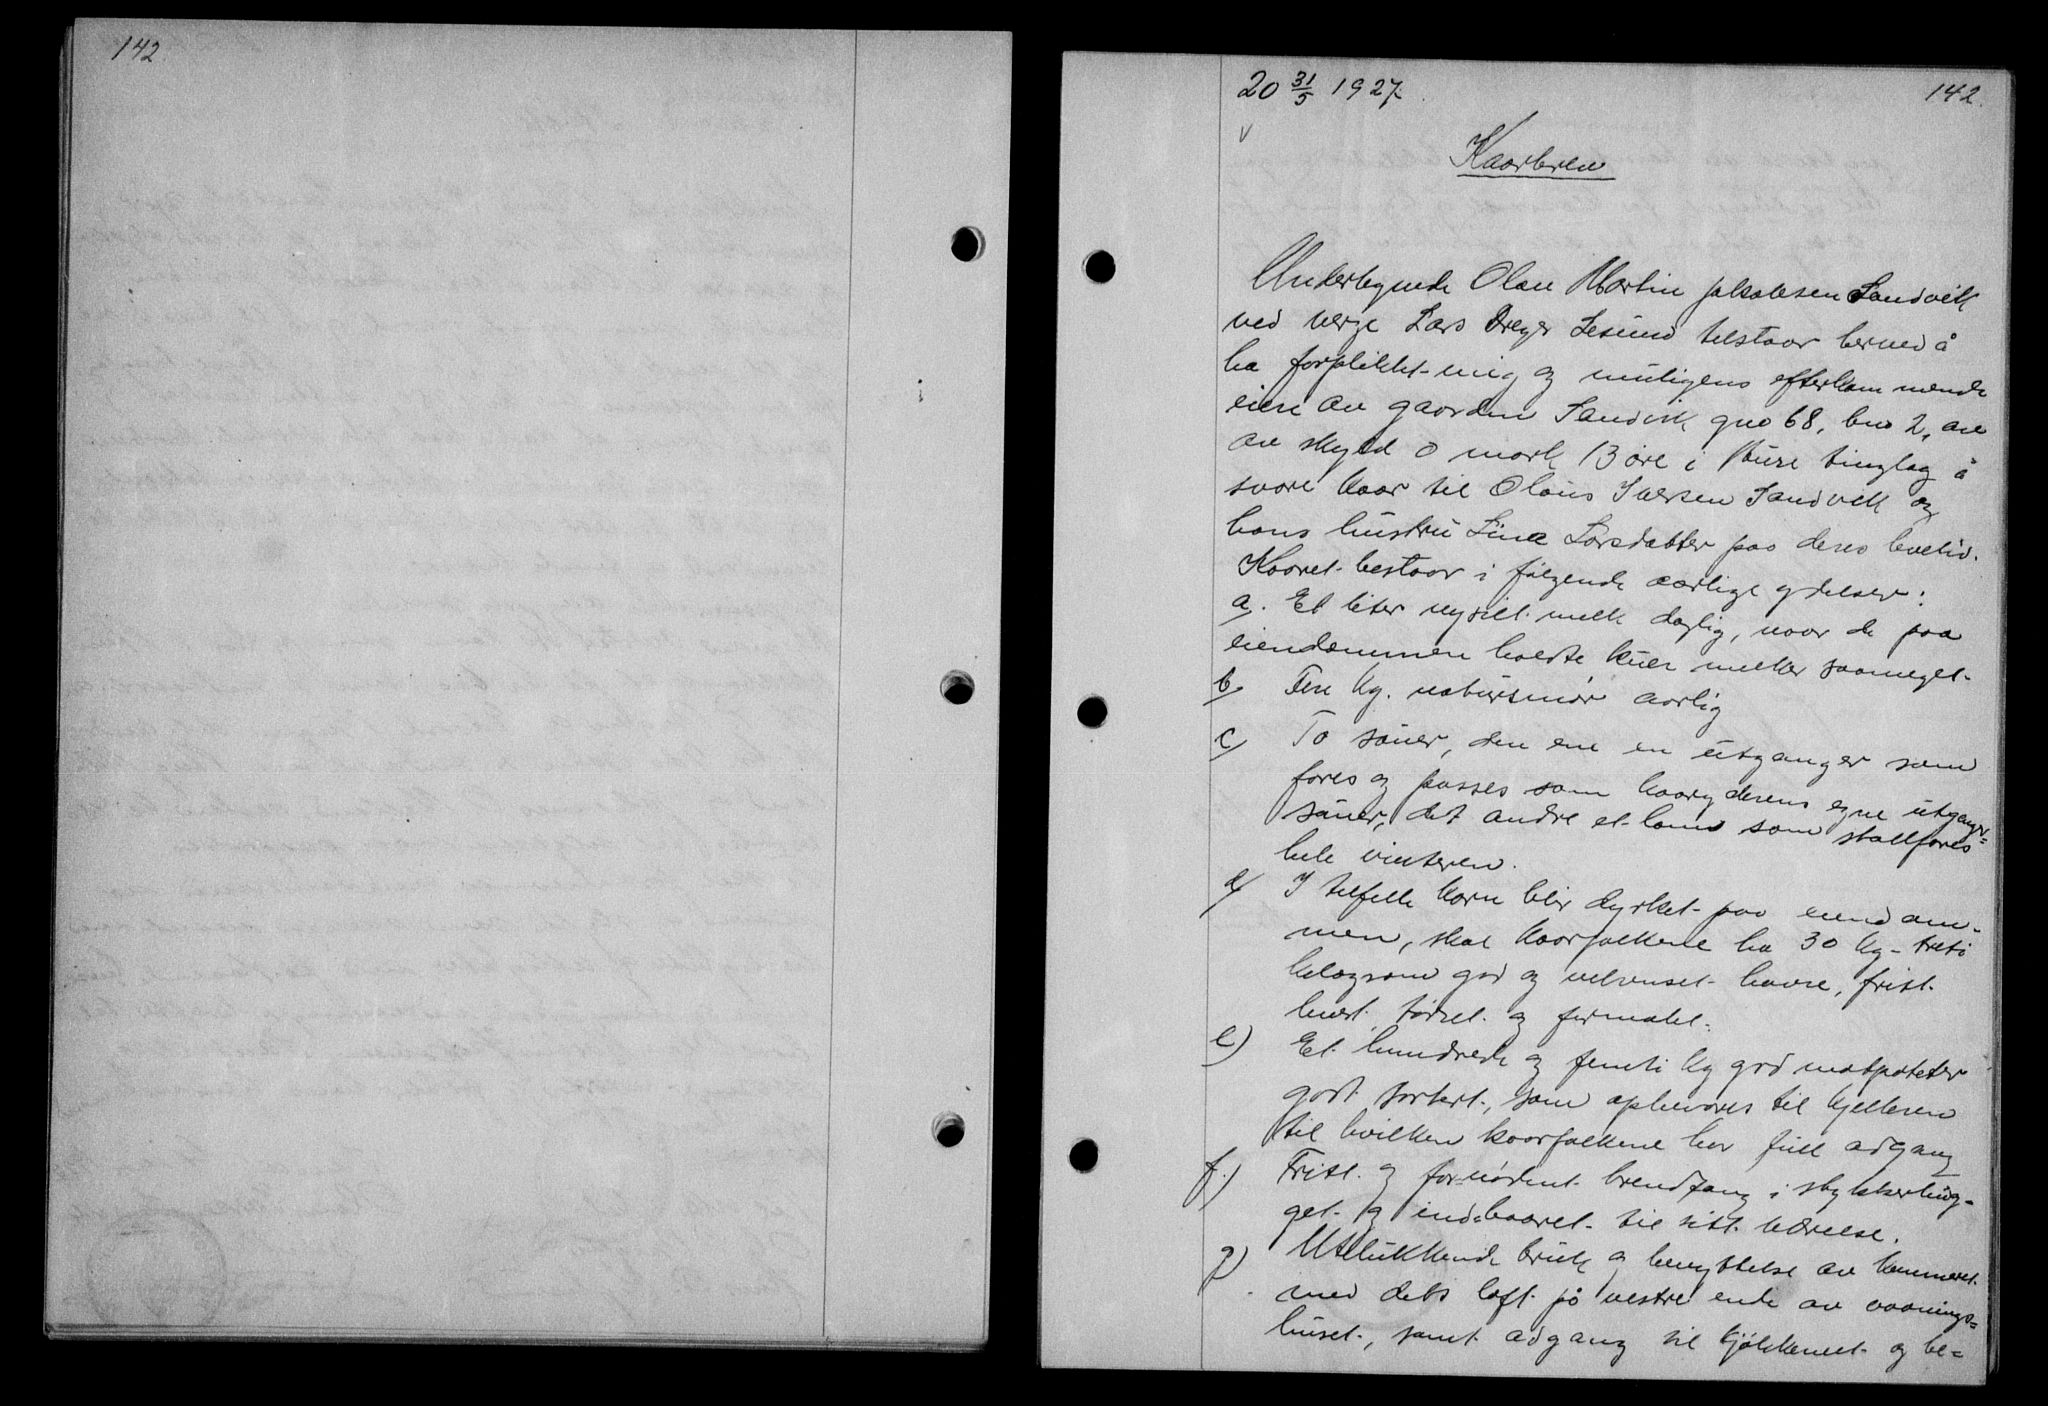 142
20 31/5 1927.
142.
v
Kaarbrev
Undertegnede Olav Martin Jakobsen Sandvik
ved verge Lars Dreyer Lesund tilstaar herved å
ha forpliktet mig og muligens efterkommende
eiere av gaarden Sandvik gno 68, bno 2, av
av skyld 0 mark 13 øre i Aure tinglag å
svare kaar til Olaus Iversen Sandvik og
hans hustru Lina Larsdatter paa deres levetid.
Kaaret bestaar i følgende aarlige ydelser:
a. Et liter nysilt melk daglig, naar de paa
eiendommen holdte kuer melker saameget.
b Fem kg. natursmør aarlig
c) To sauer, den ene en utganger som
fores og passes som kaaryderens egne utganger=
sauer, det andre et lam som stallfores
hele vinteren.
d) I tilfelle korn blir dyrket paa eiendom-
men, skal kaarfolkene ha 30 kg - treti
kilogram god og velrenset havre, frit
levert tørket og formalet.
e) Et hundrede og femti kg god matpoteter
godt sortert, som opbevares til kjelleren
til hvilken kaarfolkene har full adgang
f.) Fritt og fornødent brendfang i stykkerhug-
get og ind=baaret til sitt værelse.
g) Utelukkende bruk og benyttelse av kammeret
med dets loft på vestre ende av vaanings=
huset, samt adgang til kjøkkenet og be=